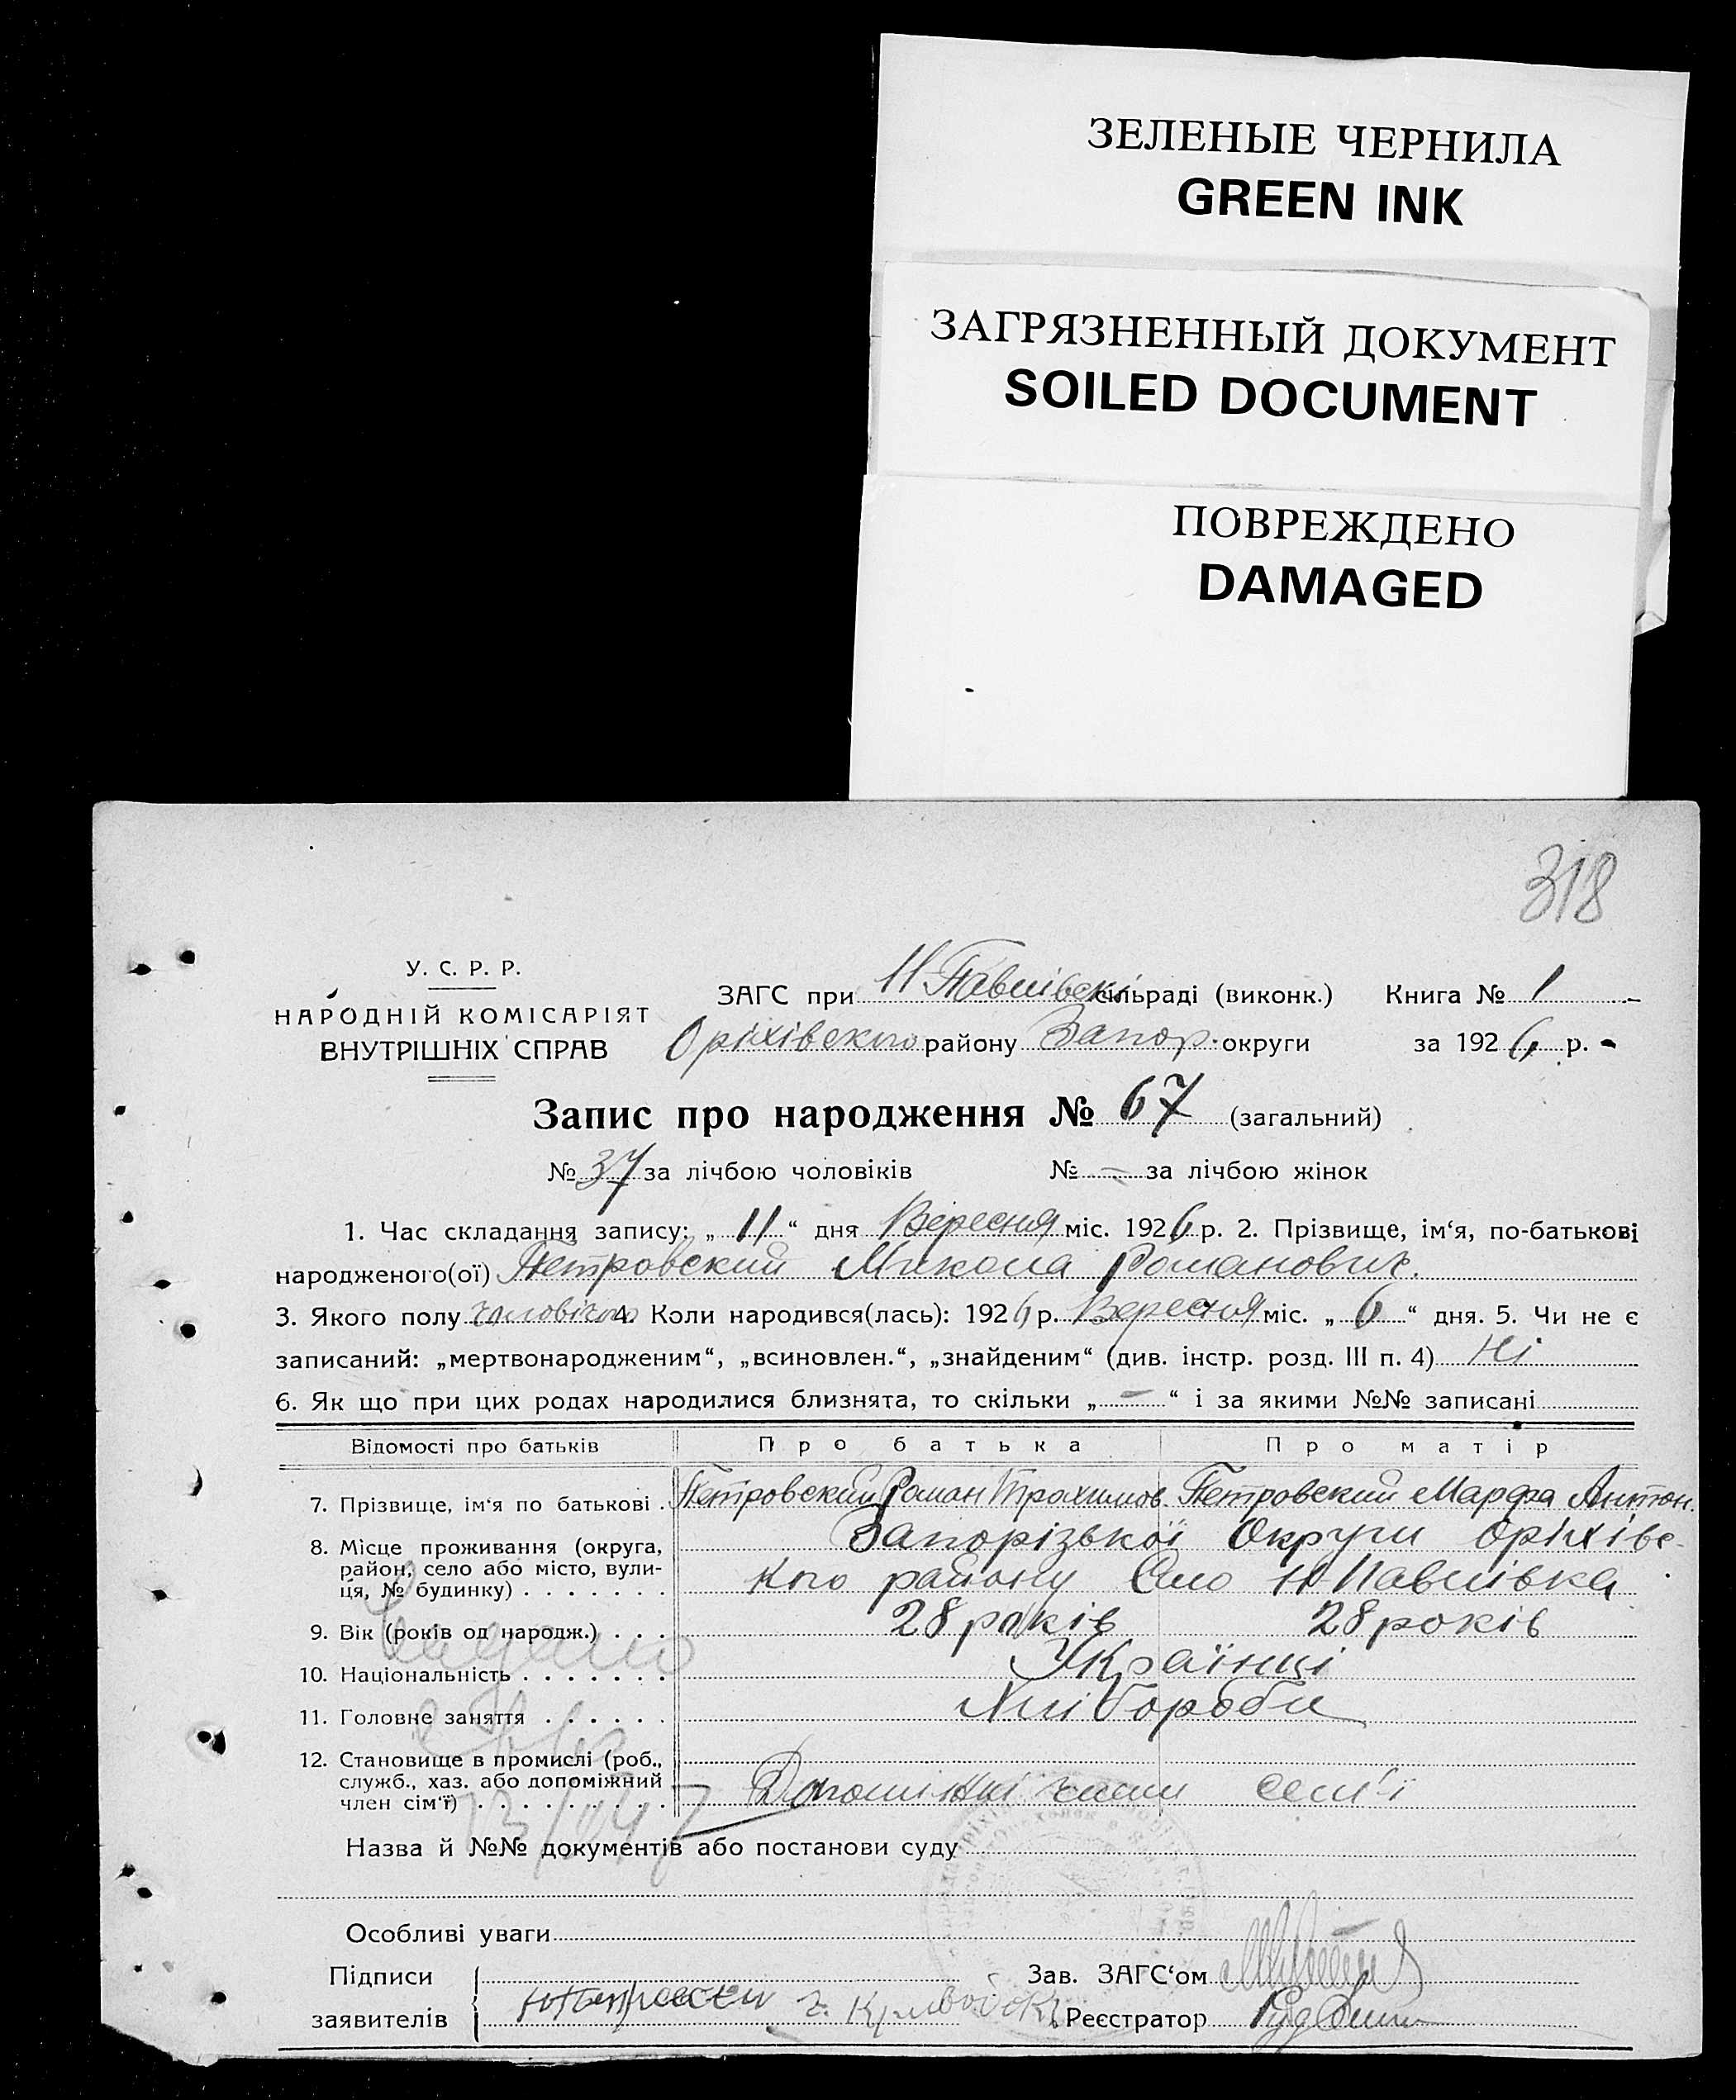 ЗЕЛЕНЫЕ ЧЕРНИЛА
GREEN INK
ЗАГРЯЗНЕННЫЙ ДОКУМЕНТ
SOILED DOCUMENT
ПОВРЕЖДЕНО
DAMAGED
318
У. С. Р. Р.
НАРОДНІЙ КОМІСАРІЯТ
ВНУТРІШНІХ СПРАВ
ЗАГС при Н Павлівскі сільраді (виконк.) Книга № 1
Оріхівского району Запор. округи за 1926 р.
Запис про народження № 67 (загальний)
№ 37 за лічбою чоловіків № – за лічбою жінок
1. Час складання запису: „11“ дня Вересня міс. 1926 р. 2. Прізвище, ім'я, по-батькові
народженого(ої) Петровский Микола Романович.
3. Якого полу чоловічого 4. Коли народився(лась): 1926 р. Вересня міс. „6“ дня. 5. Чи не є
записаний: „мертвонародженим“, „всиновлен.“, „знайденим“ (див. інстр. розд. III п. 4) Ні
6. Як що при цих родах народилися близнята, то скільки „–“ і за якими №№ записані
Відомості про батьків Про батька Про матір
7. Прізвище, ім'я по батькові . Петровский Роман Трохимов. Петровский Марфа Антон.
8. Місце проживання (округа, район, село або місто, вулиця, № будинку) . . . . . . . Запорізької Округи Оріхівс-
кого району Село Н Павлівка
9. Вік (років од народж.) . . . 28 років 28 років
10. Національність . . . . . . . Українці
11. Головне заняття . . . . . . Хлібороби
12. Становище в промислі (роб., служб., хаз. або допоміжний член сім'ї) . . . . . . . . . Допоміжні члени сем'ї
Назва й №№ документів або постанови суду
Особливі уваги
Підписи
заявителів
Зав. ЗАГС'ом
Реєстратор